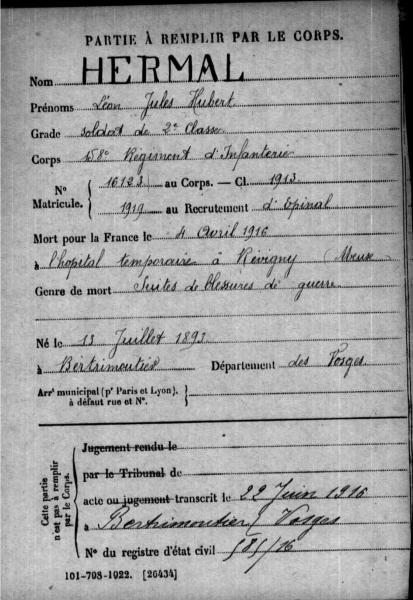 PARTIE À REMPLIR PAR LE CORPS.
Nom HERMAL
Prénoms Léon Jules Hubert
Grade soldat de 2e Classe
Corps 158e Régiment d'Infanterie
N° Matricule. { 16123 au Corps. — Cl. 1913
1919 au Recrutement d'Epinal
Mort pour la France le 4 Avril 1916
à l'hopital temporaire à Révigny (Meuse
Genre de mort Suites de blessures de guerre
Né le 13 Juillet 1893
à Bertrimoutier Département des Vosges
Arrt municipal (pr Paris et Lyon), à défaut rue et N°.
Cette partie n'est pas à remplir par le Corps.
Jugement rendu le
par le Tribunal de
acte ou jugement transcrit le 22 Juin 1916
à Bertrimoutier (Vosges
N° du registre d'état civil
101-708-1922. [26434]